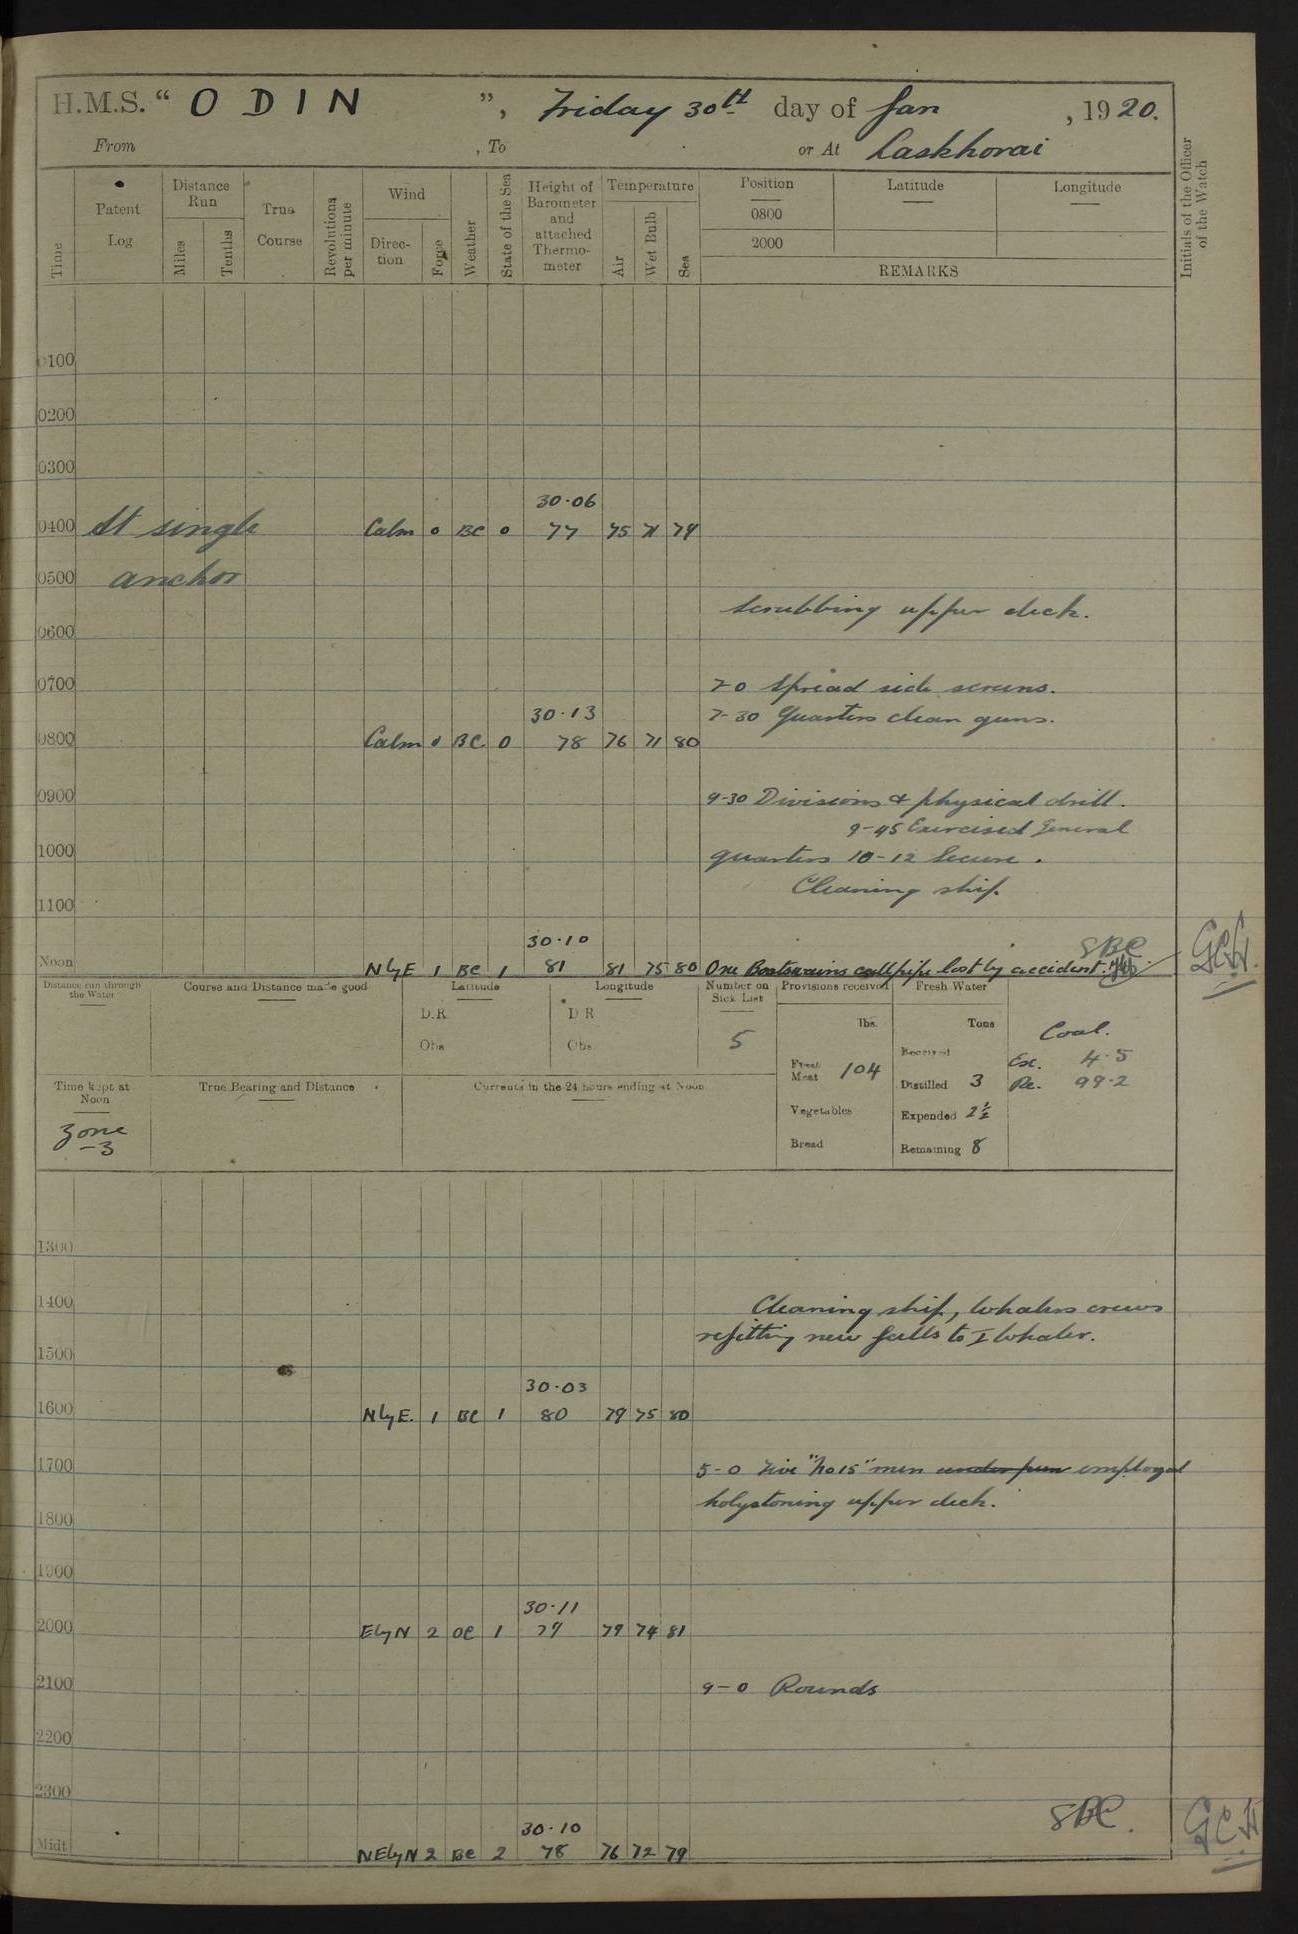 H.M.S. “ O D I N ”, Friday 30th day of Jan , 1920.
From , To or At Laskhorai
Time
Patent Log
Distance Run
Miles
Tenths
True Course
Revolutions per minute
Wind
Direction
Force
Weather
State of the Sea
Height of Barometer and attached Thermometer
Temperature
Air
Wet Bulb
Sea
Position Latitude Longitude
0800
2000
REMARKS
Initials of the Officer of the Watch
0100
0200
0300
30.06
0400 At single Calm 0 BC 0 77 75 71 74
0500 anchor
Scrubbing upper deck.
0600
0700 7-0 Spread side screens.
30.13 7-30 Quarters clean guns.
0800 Calm 0 BC 0 78 76 71 80
0900 9-30 Divisions & physical drill.
9-45 Exercised General
1000 quarters 10-12 Secure.
Cleaning ship.
1100
30.10 SBC GCH.
Noon N by E 1 BC 1 81 81 75 80 One Boatswains call pipe lost by accident.
Distance run through the Water
Course and Distance made good
Latitude
D.R.
Obs.
Longitude
D R
Obs.
Number on Sick List
5
Provisions received
lbs.
Fresh Meat 104
Vegetables
Bread
Fresh Water
Tons
Received
Distilled 3
Expended 2½
Remaining 8
Coal.
Ex. 4.5
Re. 99.2
Time kept at Noon
Zone
-3
True Bearing and Distance
Currents in the 24 hours ending at Noon
1300
1400 Cleaning ship, whalers crews
refitting new falls to I Whaler.
1500
30.03
1600 N by E. 1 BC 1 80 79 75 80
1700 5-0 Five "No 15" men under pun employed
holystoning upper deck.
1800
1900
30.11
2000 E by N 2 OC 1 79 79 74 81
2100 9-0 Rounds
2200
2300
SBC. GCH
30.10
Midt NE by N 2 BC 2 78 76 72 79